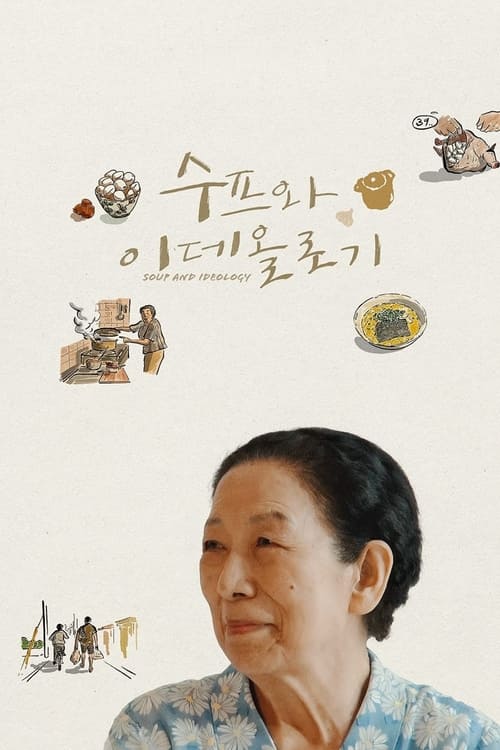 39..
수프와
이데올로기
SOUP AND IDEOLOGY